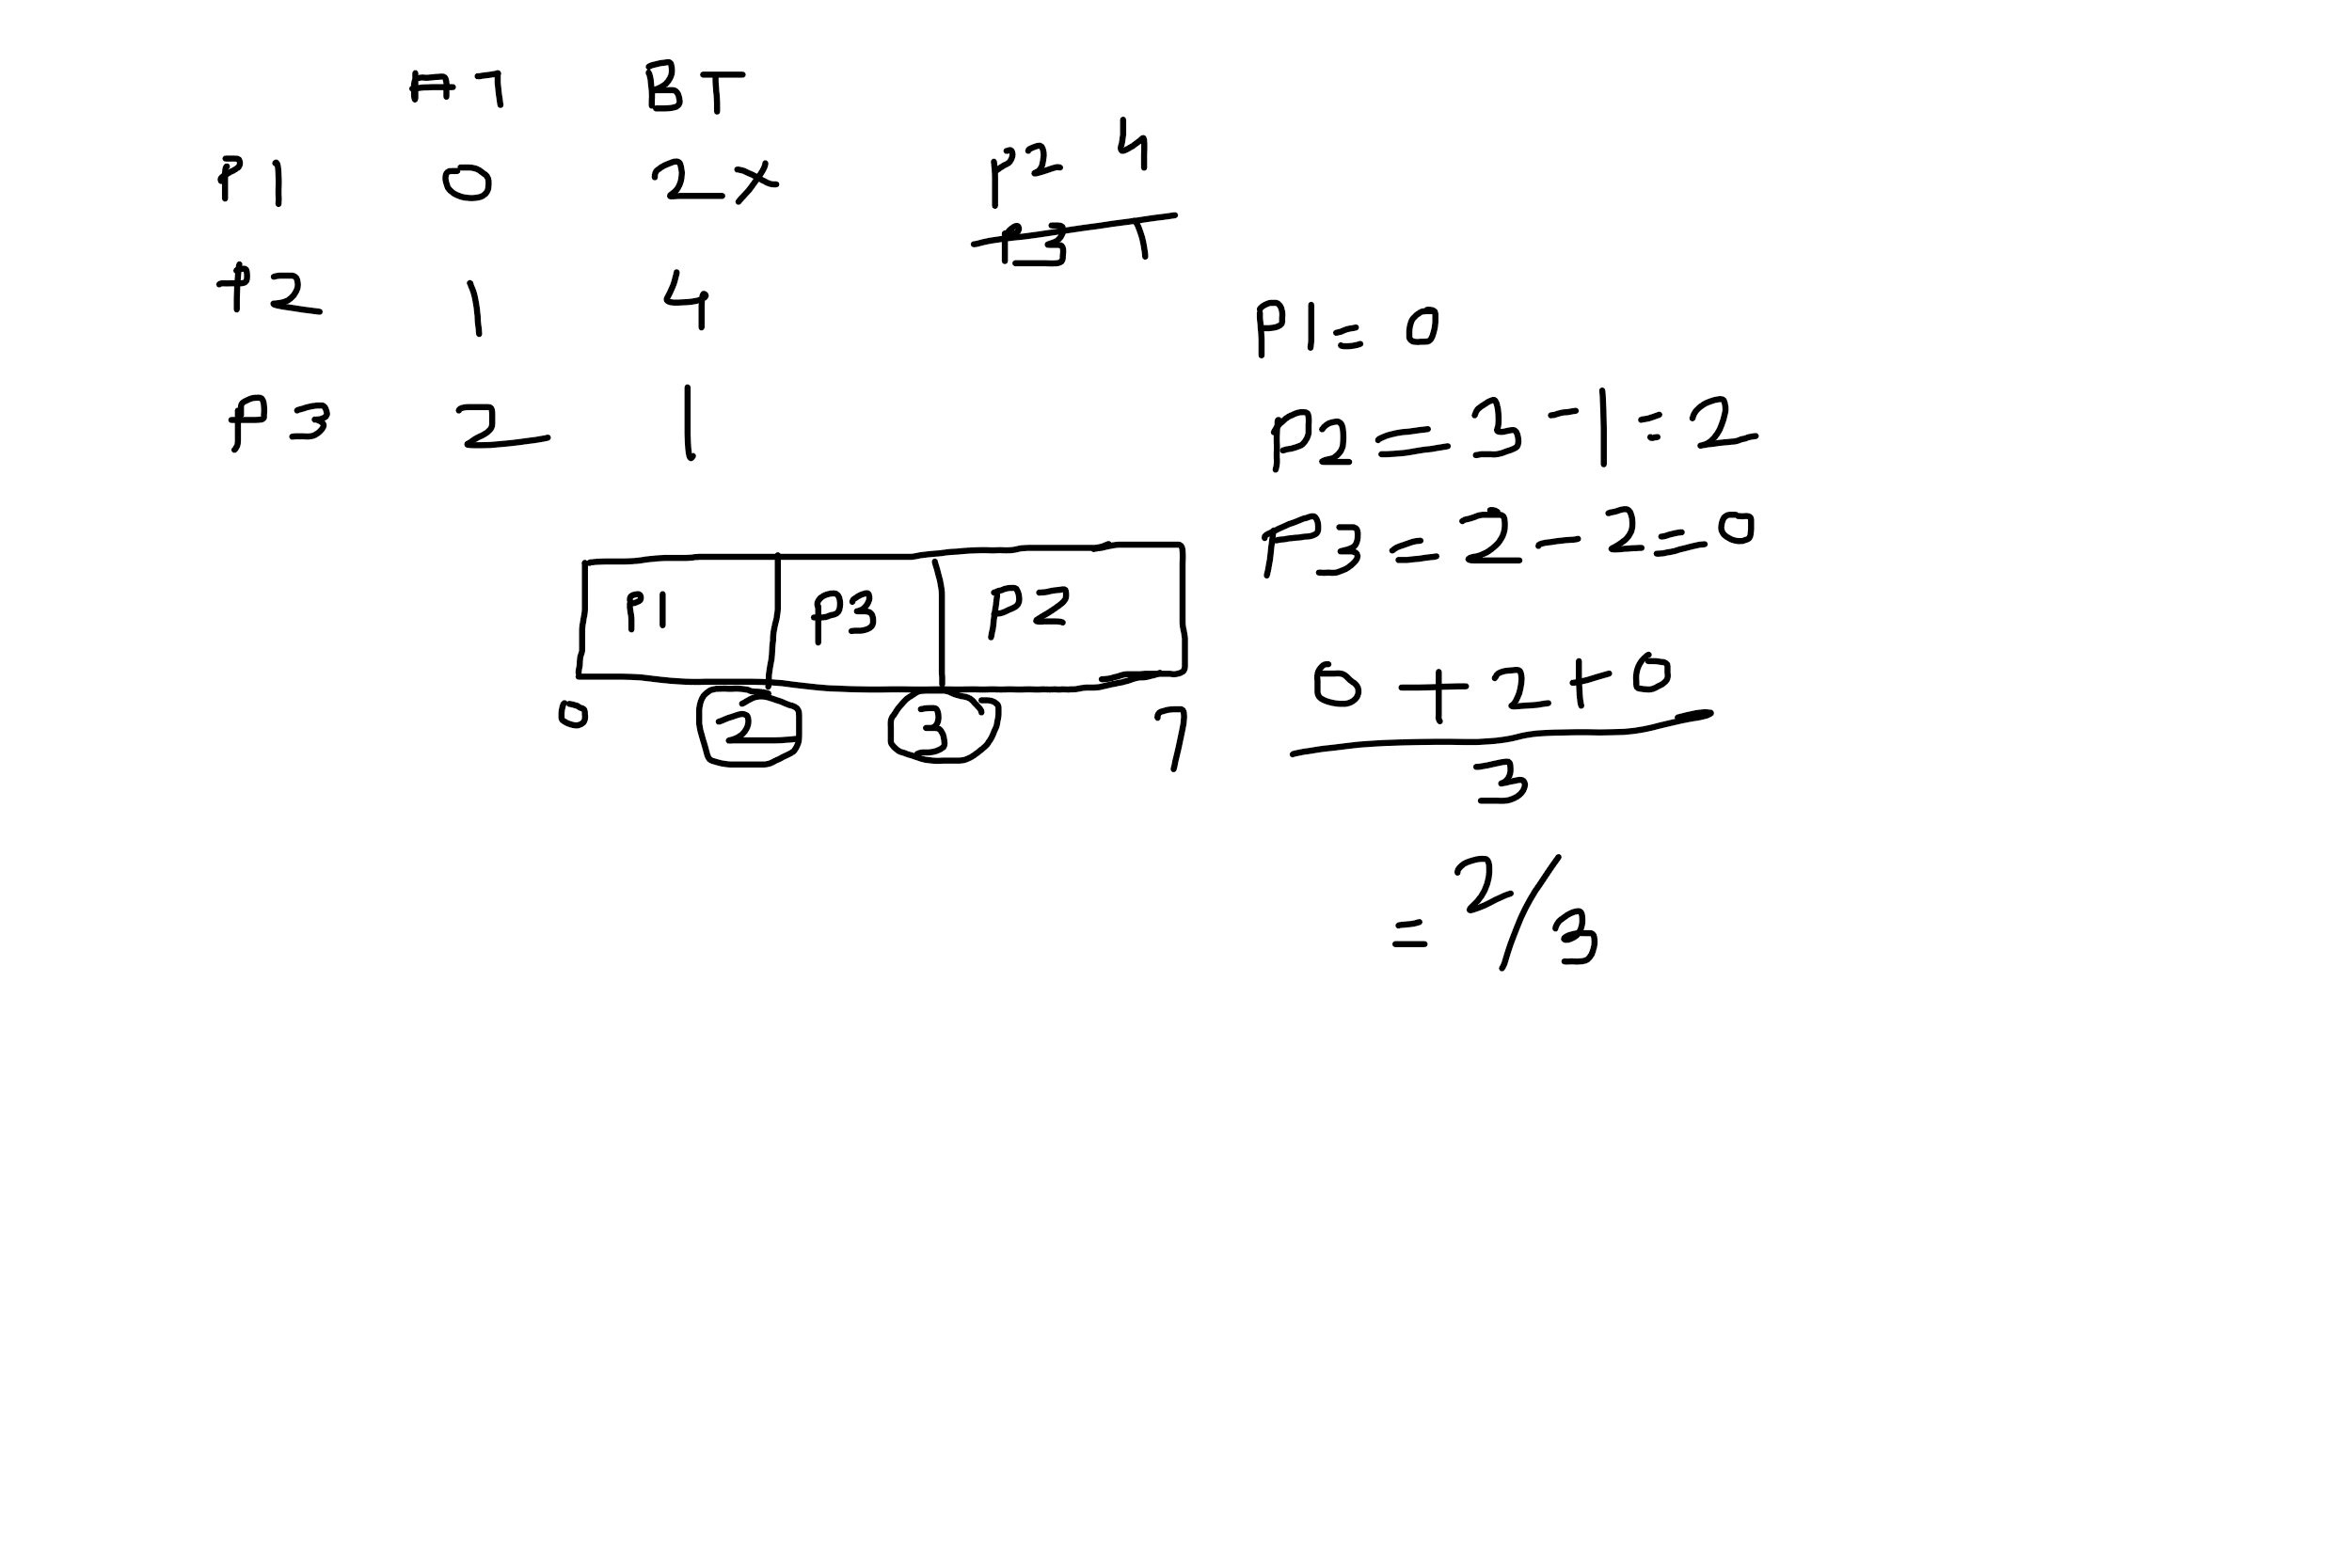 AT BT
P1 0 2 x
P2 1 4
P3 2 1
P2 4
P3 1
P1 P3 P2
0 2 3 7
P1 = 0
P2 = 3 - 1 = 2
P3 = 2 - 2 = 0
0 + 2 + 0
3
= 2/3